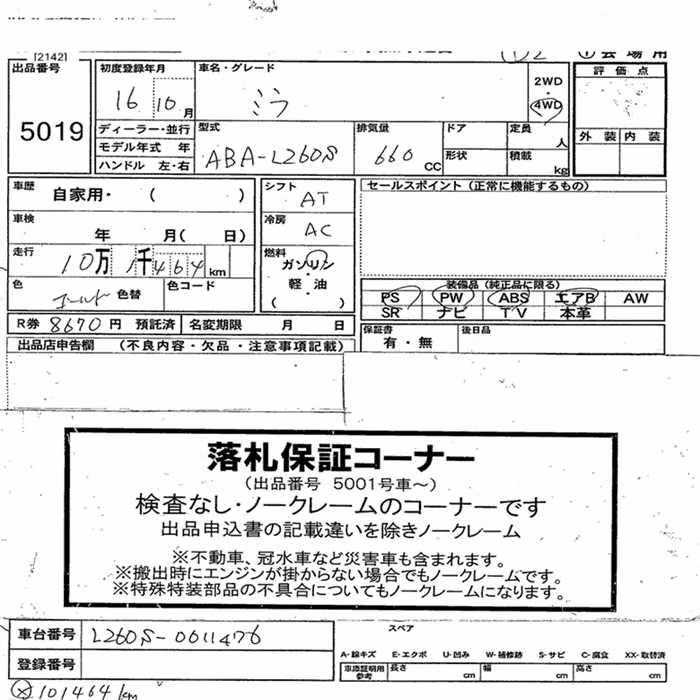 [2142]
出品番号
5019
初度登録年月
16 10月
車名・グレード
ミラ
2WD
4WD
評価点
外装 内装
ディーラー・並行
モデル年式 年
ハンドル 左・右
型式
ABA-L260S
排気量
660 CC
ドア
形状
定員
人
積載
kg
車歴
自家用・( )
車検
年 月( 日)
走行
10万 1千 464 km
色
ゴールド 色替
色コード
シフト
AT
冷房
AC
燃料
ガソリン
軽・油
( )
セールスポイント(正常に機能するもの)
装備品(純正品に限る)
PS PW ABS エアB AW
SR ナビ TV 本革
R券 8670円 預託済 名変期限 月 日
保証書
有・無
後日品
出品店申告欄 (不良内容・欠品・注意事項記載)
落札保証コーナー
(出品番号 5001号車~)
検査なし・ノークレームのコーナーです
出品申込書の記載違いを除きノークレーム
※不動車、冠水車など災害車も含まれます。
※搬出時にエンジンが掛からない場合でもノークレームです。
※特殊特装部品の不具合についてもノークレームになります。
車台番号
L260S-0011476
登録番号
スペア
A-線キズ E-エクボ U-凹み W-補修跡 S-サビ C-腐食 XX-取替済
車庫証明用
参考
長さ cm 幅 cm 高さ cm
101464km